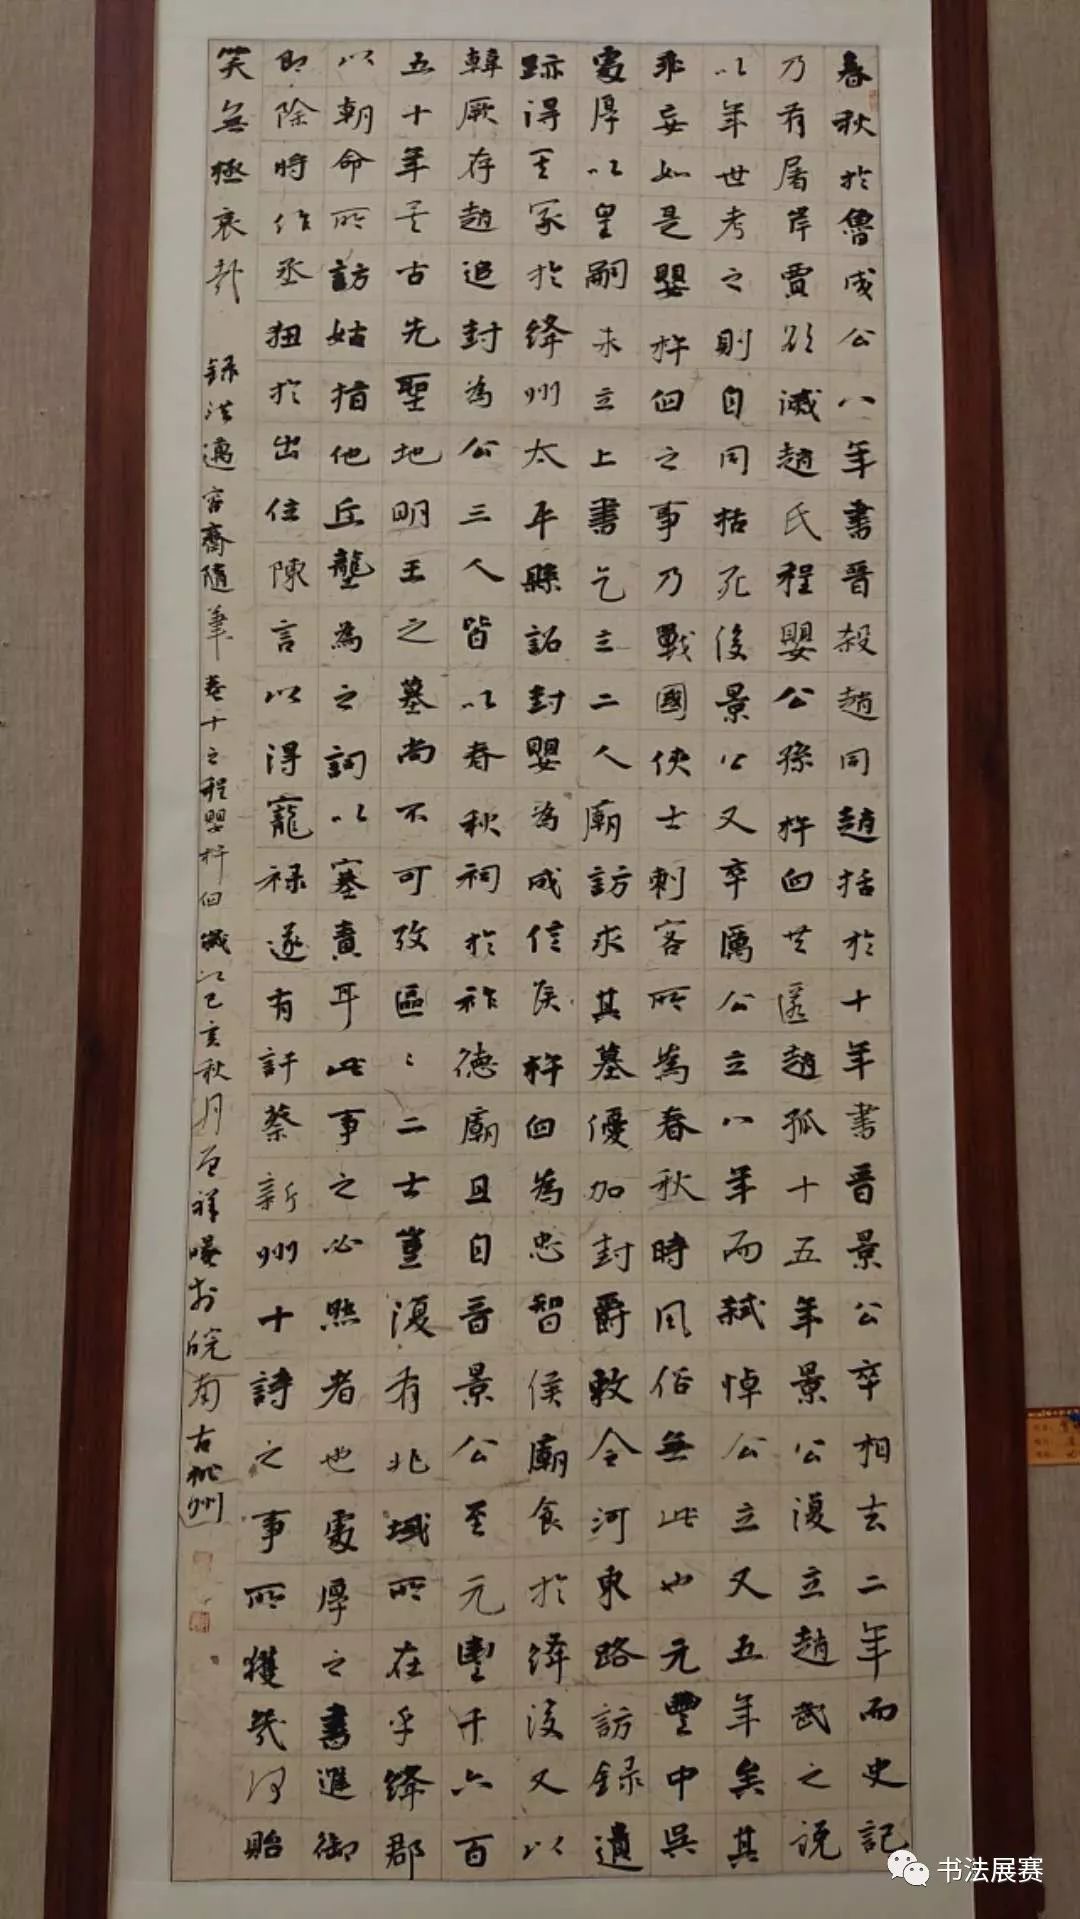 春秋於魯成公八年書晉殺趙同趙括於十年書晉景公卒相去二年而史記
乃有屠岸賈欲滅趙氏程嬰公孫杵臼共匿趙孤十五年景公復立趙武之說
以年世考之則自同括死後景公又卒厲公立八年而弒悼公立又五年矣其
乖妄如是嬰杵臼之事乃戰國俠士刺客所為春秋時風俗無此也元豐中吳
處厚以皇嗣未立上書乞立二人廟訪求其墓優加封爵敕令河東路訪錄遺
跡得其冢於絳州太平縣詔封嬰為成信侯杵臼為忠智侯廟食於絳後又以
韓厥存趙追封為公三人皆以春秋祠於祚德廟且自晉景公至元豐千六百
五十年矣古先聖地明王之墓尚不可攷區〻二士豈復有兆域所在乎絳郡
以朝命所訪姑指他丘壟為之詞以塞責耳此事之必然者也處厚之書進御
即除時作丞狃於出位陳言以得寵祿遂有訐蔡新州十詩之事所獲幾何貽
笑無極哀哉
錄洪邁容齋隨筆卷十之程嬰杵臼歲次己亥秋月 祥 於皖南古 州
书法展赛